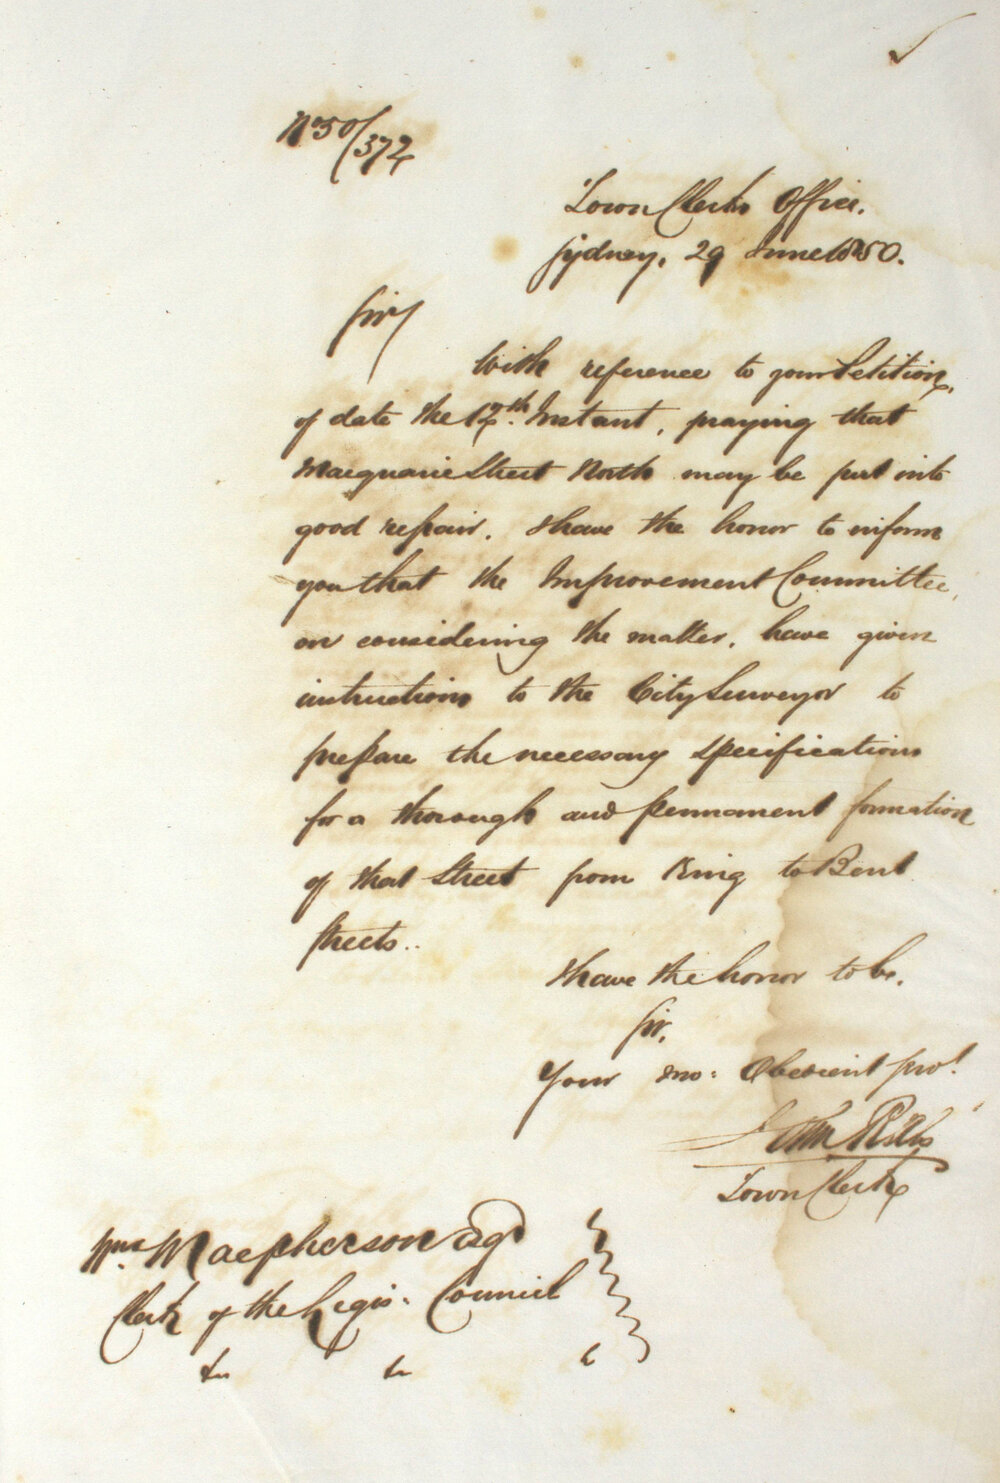 No 50/372
Town Clerks Office.
Sydney, 29 June 1850.
Sir/
With reference to your Petition,
of date the 12th. Instant, praying that
Macquarie Street North may be put into
good repair. I have the honor to inform
you that the Improvement Committee,
on considering the matter, have given
instructions to the City Surveyor to
prepare the necessary specifications
for a thorough and permanent formation
of that Street from King to Bent
Streets..
I have the honor to be,
Sir,
Your mo: Obedient Servt.
John Rae
Town Clerk
Wm. Macpherson Esqr
Clerk of the Legis: Council
&c &c &c